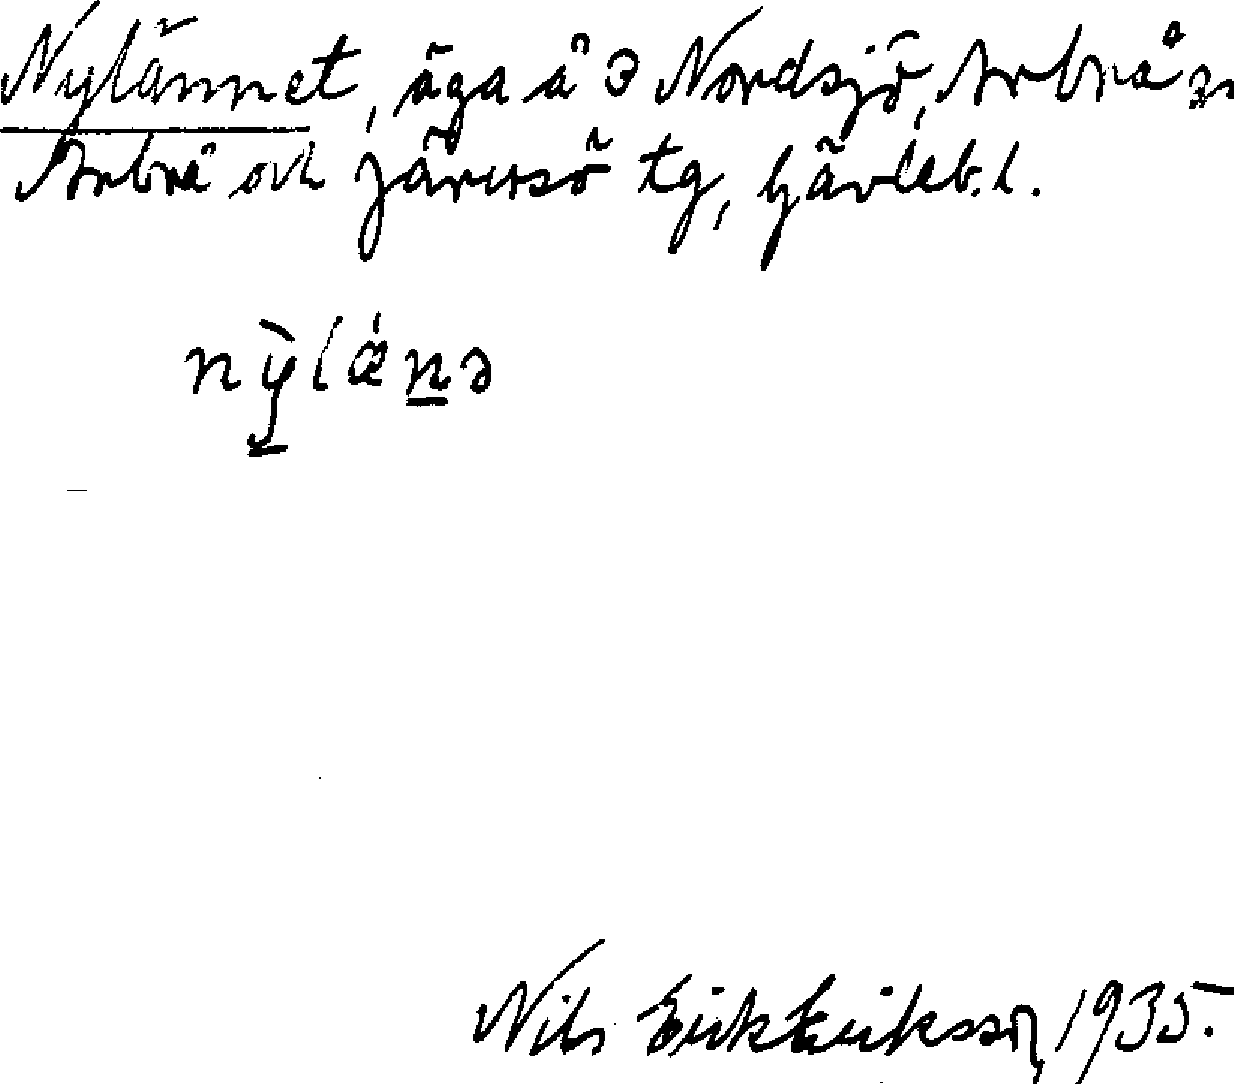 Nylännet, äga å 3 Nordsjö, Arbrå sn
Arbrå och Järvsö tg, Gävleb. l.
nỳlǽnə
Nils Erik Eriksson, 1935.